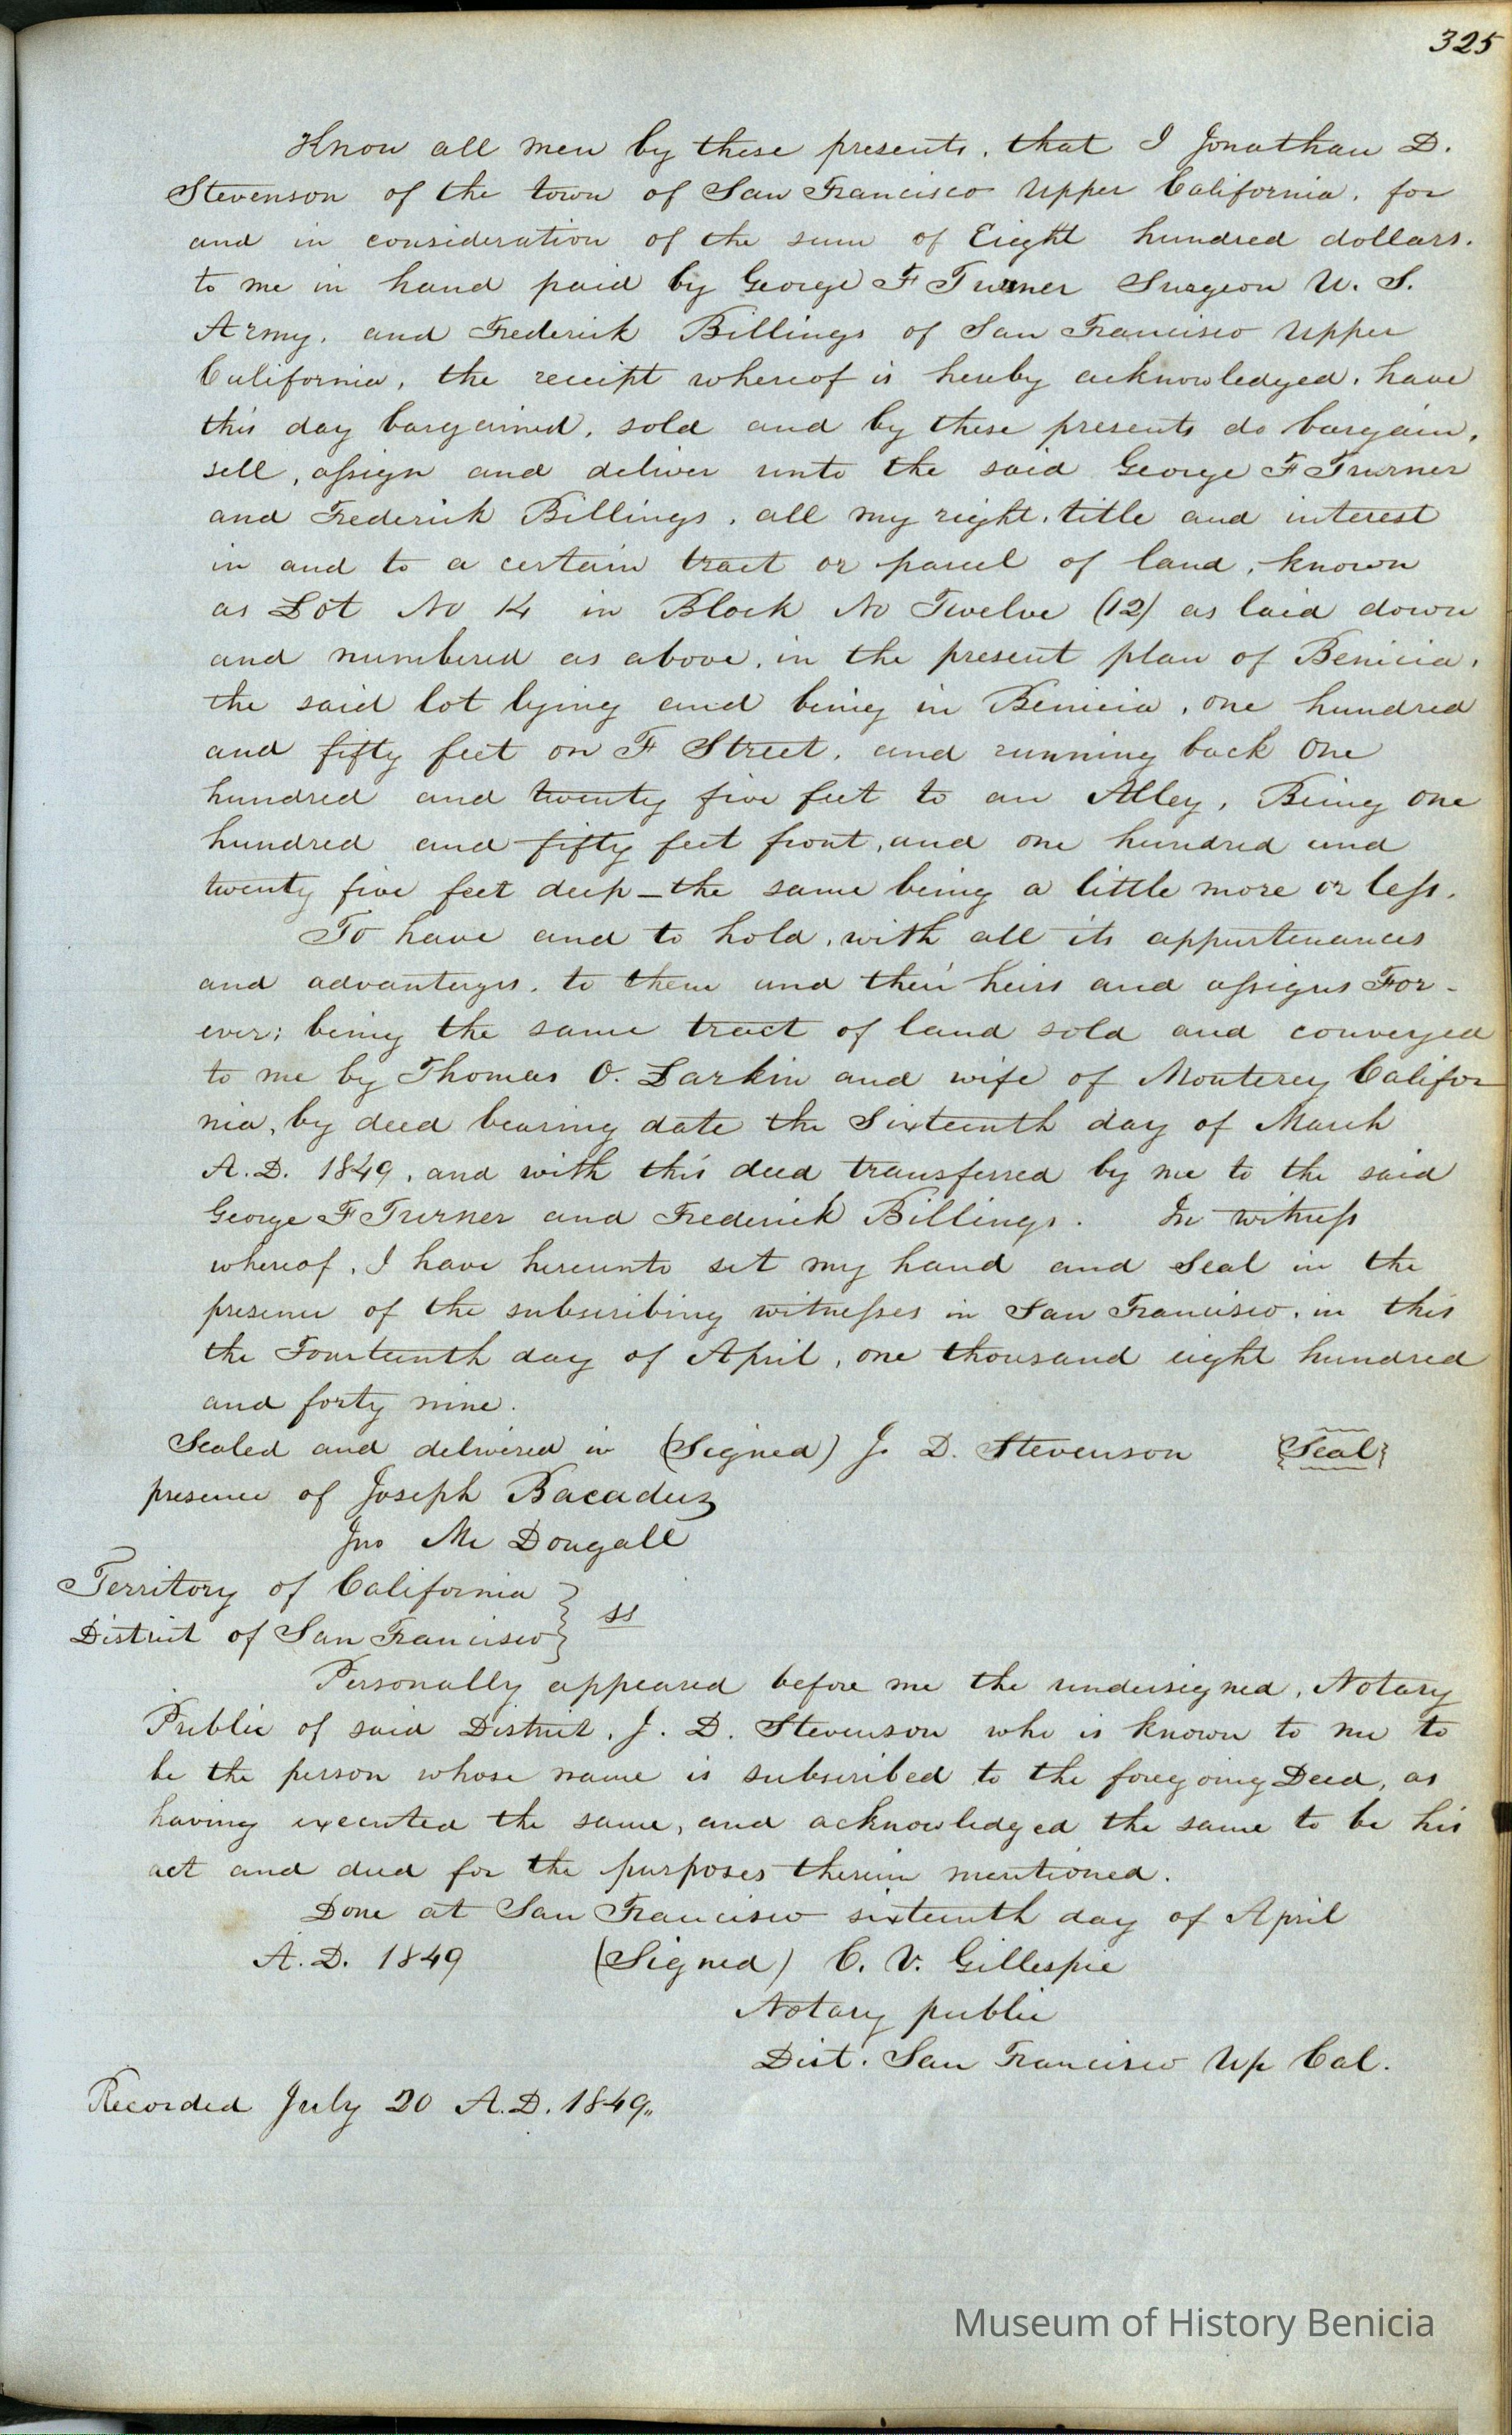 325
Know all men by these presents, that I Jonathan D.
Stevenson of the town of San Francisco Upper California, for
and in consideration of the sum of Eieght hundred dollars.
to me in hand paid by George F Turner Surgeon U. S.
Army, and Frederick Billings of San Francisco Upper
California, the receipt whereof is hereby acknowledged, have
this day bargained, sold and by these presents do bargain,
sell, assign and deliver unto the said George F Turner
and Frederick Billings, all my right, title and interest
in and to a certain tract or parcel of land, known
as Lot No 14 in Block No Twelve (12) as laid down
and numbered as above, in the present plan of Benicia,
the said lot lying and being in Benicia, one hundred
and fifty feet on F Street, and running back One
hundred and twenty five feet to an Alley, Being one
hundred and fifty feet front, and one hundred and
twenty five feet deep — the same being a little more or less.
To have and to hold, with all its appurtenances
and advantages, to them and their heirs and assigns For-
ever; being the same tract of land sold and conveyed
to me by Thomas O. Larkin and wife of Monterey Califor
nia, by deed bearing date the Sixteenth day of March
A.D. 1849, and with this deed transferred by me to the said
George F Turner and Frederick Billings. In witness
whereof, I have hereunto set my hand and Seal in the
presence of the subscribing witnesses in San Francisco, in this
the Fourteenth day of April, one thousand eight hundred
and forty nine.
Sealed and delivered in (Signed) J. D. Stevenson {Seal}
presence of Joseph Bacaduz
Jno Mc Dougall
Territory of California }
District of San Francisco } ss
Personally appeared before me the undersigned, Notary
Public of said District, J. D. Stevenson who is known to me to
be the person whose name is subscribed to the foregoing Deed, as
having executed the same, and acknowledged the same to be his
act and deed for the purposes therein mentioned.
Done at San Francisco sixteenth day of April
A.D. 1849 (Signed) C. V. Gillespie
Notary public
Dist. San Francisco Up Cal.
Recorded July 20 A.D. 1849.
Museum of History Benicia